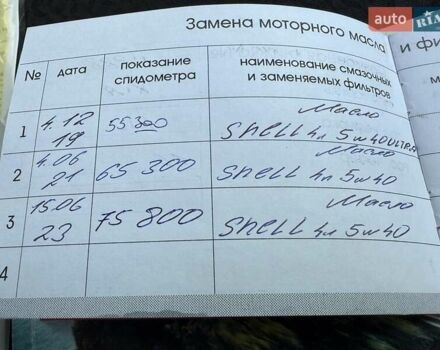 auto RIA
Замена моторного масла
и фи
№ дата показание спидометра наименование смазочных и заменяемых фильтров
м
1 4.12 19 55300 Масло Shell 4л 5w40 ULTRA
2 4.06 21 65 300 Масло Shell 4л 5w40
3 15.06 23 75 800 Масло Shell 4л 5w40
4